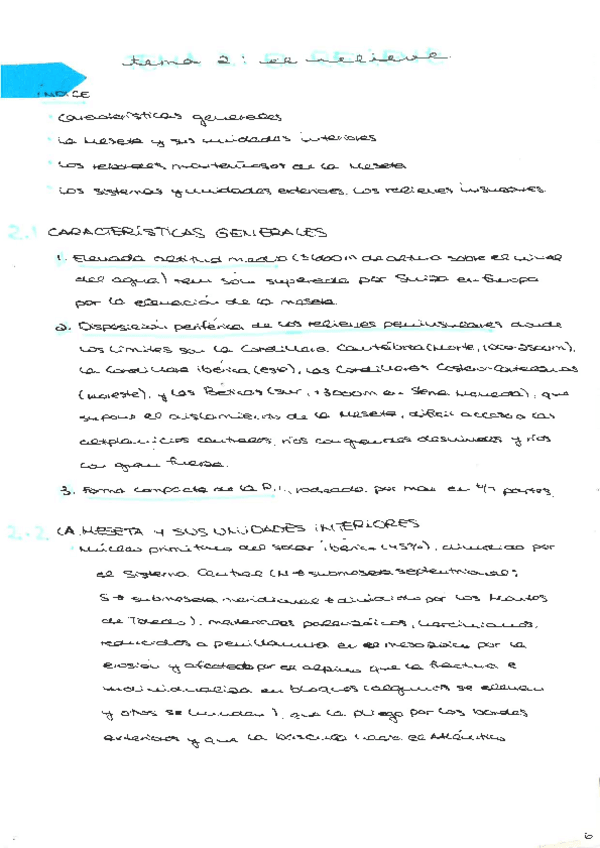 tema 2: el relieve
ÍNDICE
características generales
la Meseta y sus unidades interiores
los rebordes montañosos de la Meseta
los sistemas y unidades exteriores. los relieves insulares
2.1 CARACTERÍSTICAS GENERALES
1. Elevada altitud media ( de altura sobre el nivel
del agua) tan sólo superada por Suiza en Europa
por la elevación de la meseta.
2. Disposición periférica de los relieves peninsulares donde
los límites son la Cordillera Cantábrica (Norte, ),
la Cordillera Ibérica (este), las Cordilleras Costero-Catalanas
(noreste), y las Béticas (sur, +3000m en Sierra Nevada), que
supone el aislamiento de la Meseta, difícil acceso a las
altiplanicies centrales, ríos con grandes desniveles y ríos
con gran fuerza.
3. Forma compacta de la P.I., rodeada por mar en 4/7 partes
2.2 LA MESETA Y SUS UNIDADES INTERIORES
Núcleo primitivo del solar ibérico (45%), dividido por
el Sistema Central (N → submeseta septentrional;
S → submeseta meridional + dividido por los Montes
de Toledo), materiales paleozoicos, hercinianos,
reducidos a penillanura en el mesozoico por la
erosión y afectado por el alpino que la fractura e
individualiza en bloques (algunos se elevan
y otros se hunden), que la pliega por los bordes
exteriores y que la bascula hacia el Atlántico
6